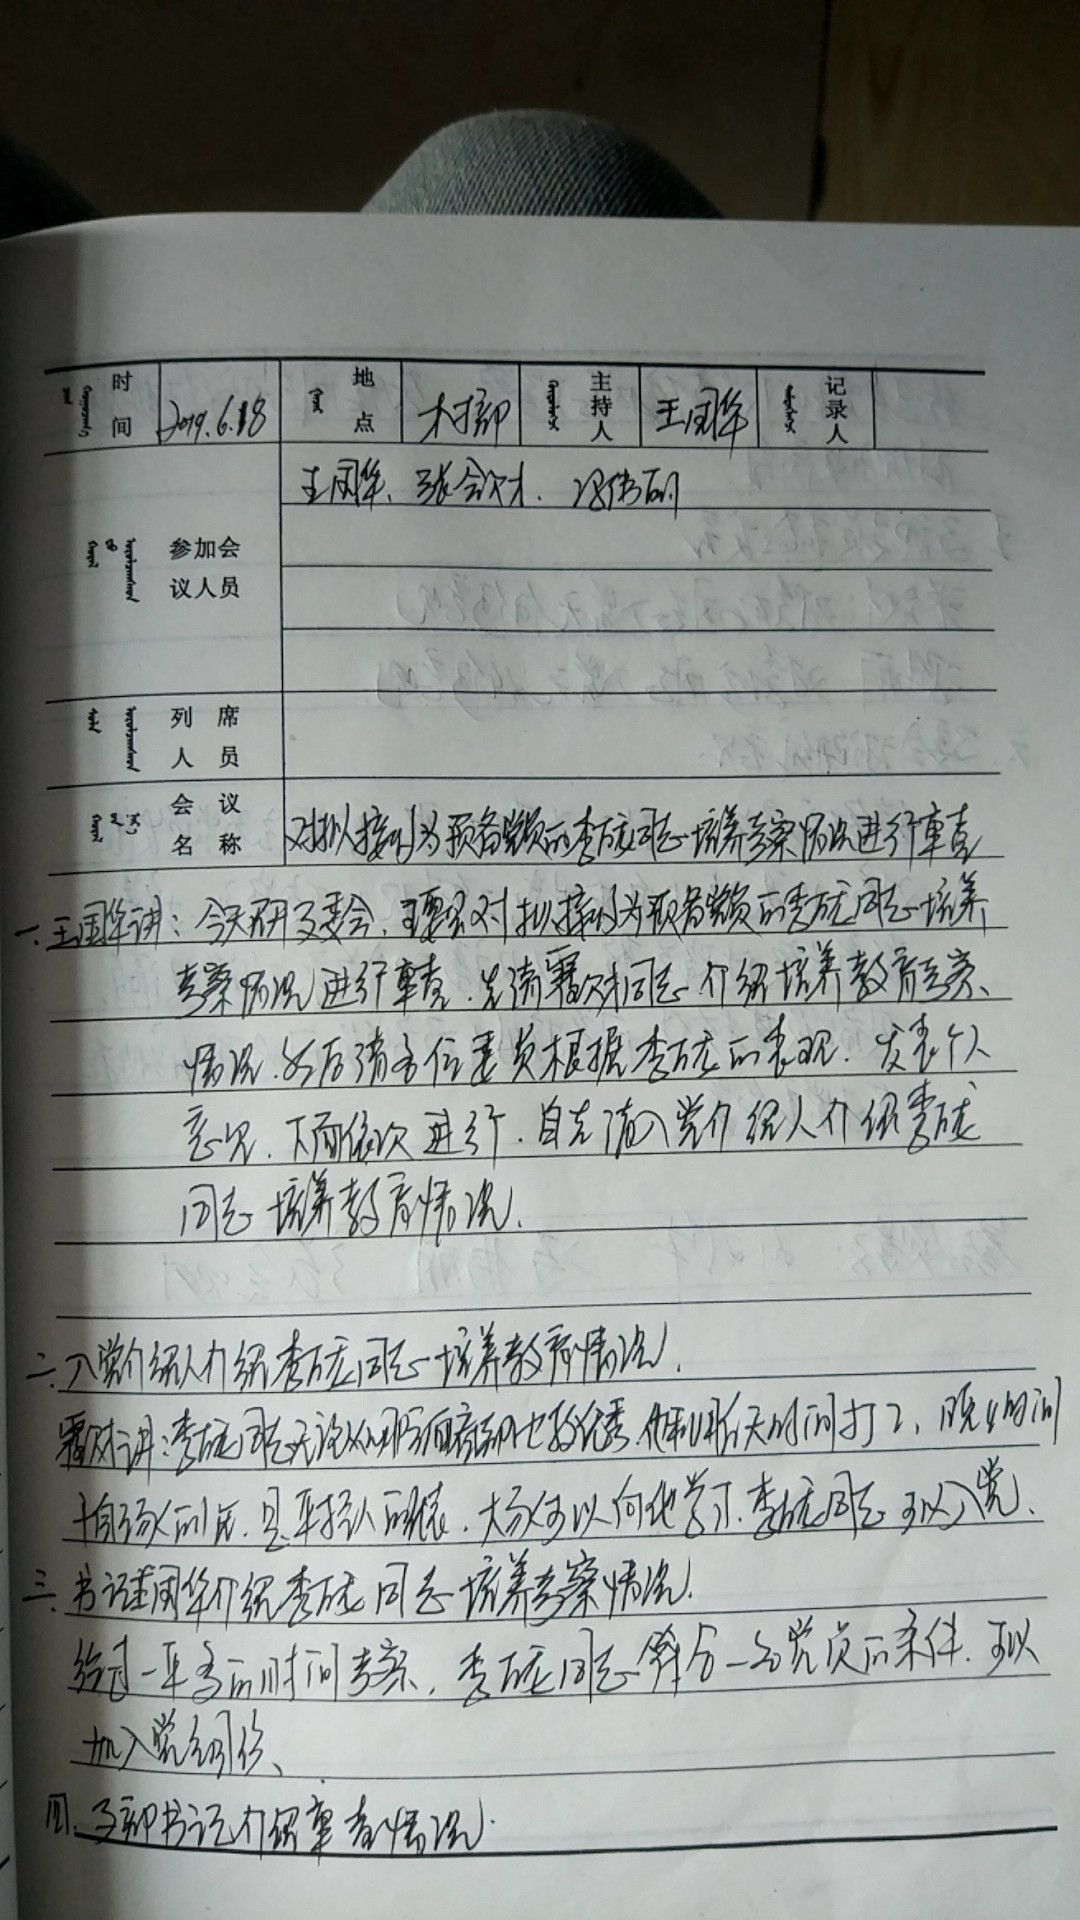 时间 2019.6.18 地点 村部 主持人 王国华 记录人
王国华、张会
参加会议人员
列席人员
会议名称 对拟接收为预备党员的李成同志培养考察情况进行审查
一、王国华讲：今天召开支委会，主要是对拟接收为预备党员的李成同志培养
考察情况进行审查，先请 同志介绍培养教育考察
情况，然后请各位委员根据李成的表现，发表个人
意见，下面依次进行，首先请入党介绍人介绍李成
同志培养教育情况。
二、入党介绍人介绍李成同志培养教育情况。
讲：李成同志无论从哪方面 都比较优秀，他利用白天时间打工，晚上时间
大家可以向他学习，李成同志可以入党。
三、书记王国华介绍李成同志培养考察情况。
经过一年多的时间考察，李成同志符合一名党员的条件，可以
加入党组织、
四、支部书记介绍审查情况.